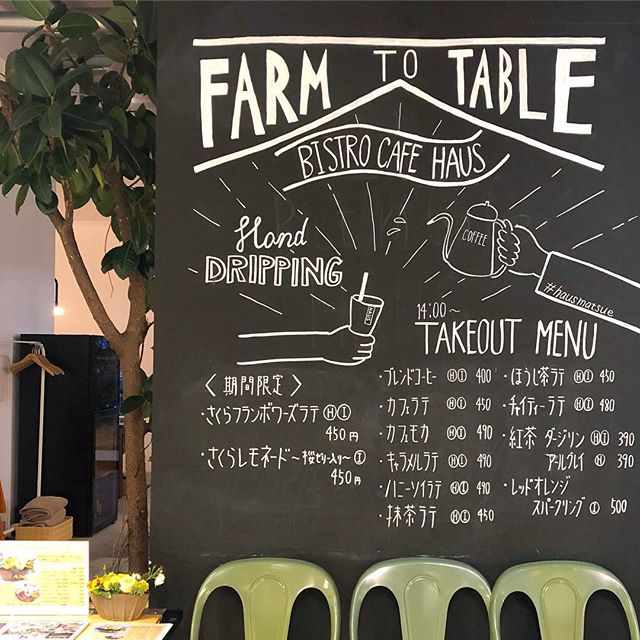 FARM TO TABLE
BISTRO CAFE HAUS
Hand
DRIPPING
COFFEE
#hausmatsue
14:00~
TAKEOUT MENU
〈期間限定〉
・さくらフランボワーズラテ Ⓗ Ⓘ
450円
・さくらレモネード~桜ゼリー入り~ Ⓘ
450円
・ブレンドコーヒー Ⓗ Ⓘ 400
・カフェラテ Ⓗ Ⓘ 450
・カフェモカ Ⓗ Ⓘ 490
・キャラメルラテ Ⓗ Ⓘ 490
・ハニーソイラテ Ⓗ Ⓘ 490
・抹茶ラテ Ⓗ Ⓘ 450
・ほうじ茶ラテ Ⓗ Ⓘ 450
・チャイティーラテ Ⓗ Ⓘ 480
・紅茶 ダージリン Ⓗ Ⓘ 390
アールグレイ Ⓗ 390
・レッドオレンジ
スパークリング Ⓘ 500